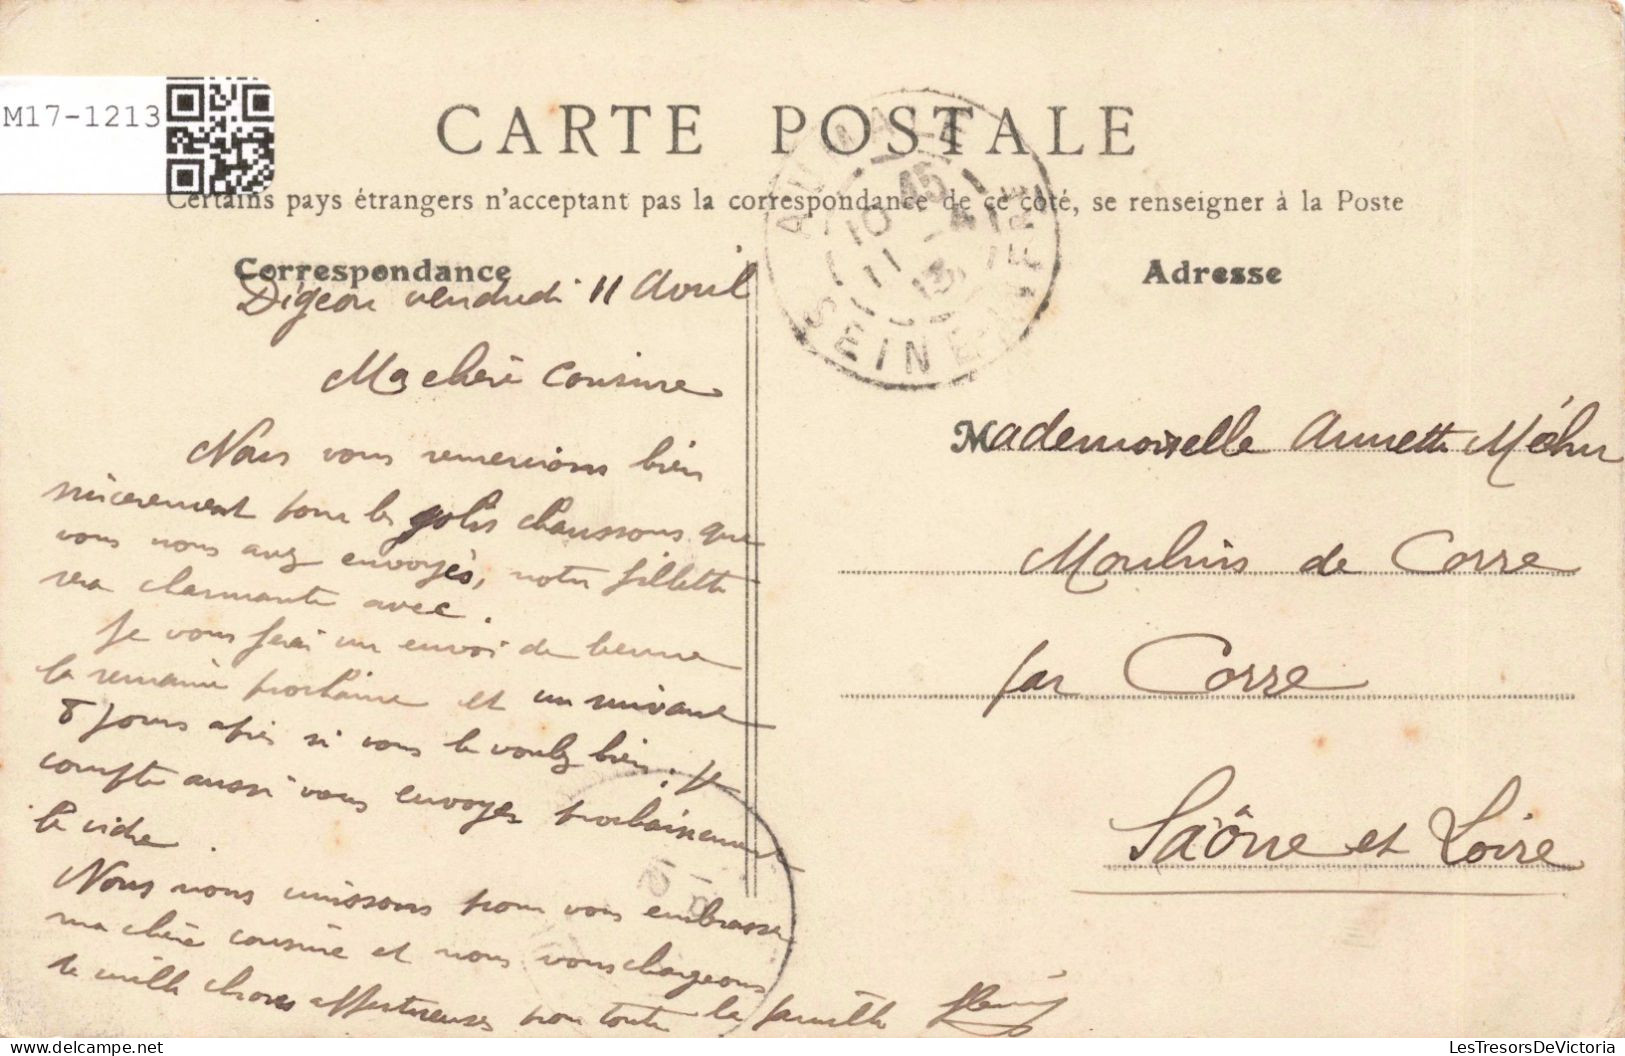 M17-1213
CARTE POSTALE
Certains pays étrangers n'acceptant pas la correspondance de ce côté, se renseigner à la Poste
AUMALE
10 45
11 - 4
13
SEINE-INFRE
Correspondance
Adresse
Digeon vendredi 11 Avril
Ma chère Cousine
Nous vous remercions bien
sincerement pour les jolis chaussons que
vous nous avez envoyés, notre fillette
sera charmante avec.
Je vous ferai un envoi de beurre
la semaine prochaine et un suivant
8 jours après si vous le voulez bien; Je
compte aussi vous envoyer prochainement
le cidre
Nous nous unissons pour vous embrasser
ma chère cousine et nous vous chargeons
de mille choses affectueuses pour toute la famille
Mademoiselle Annette
Moulins de Corre
par Corre
Saône et Loire
LesTresorsDeVictoria